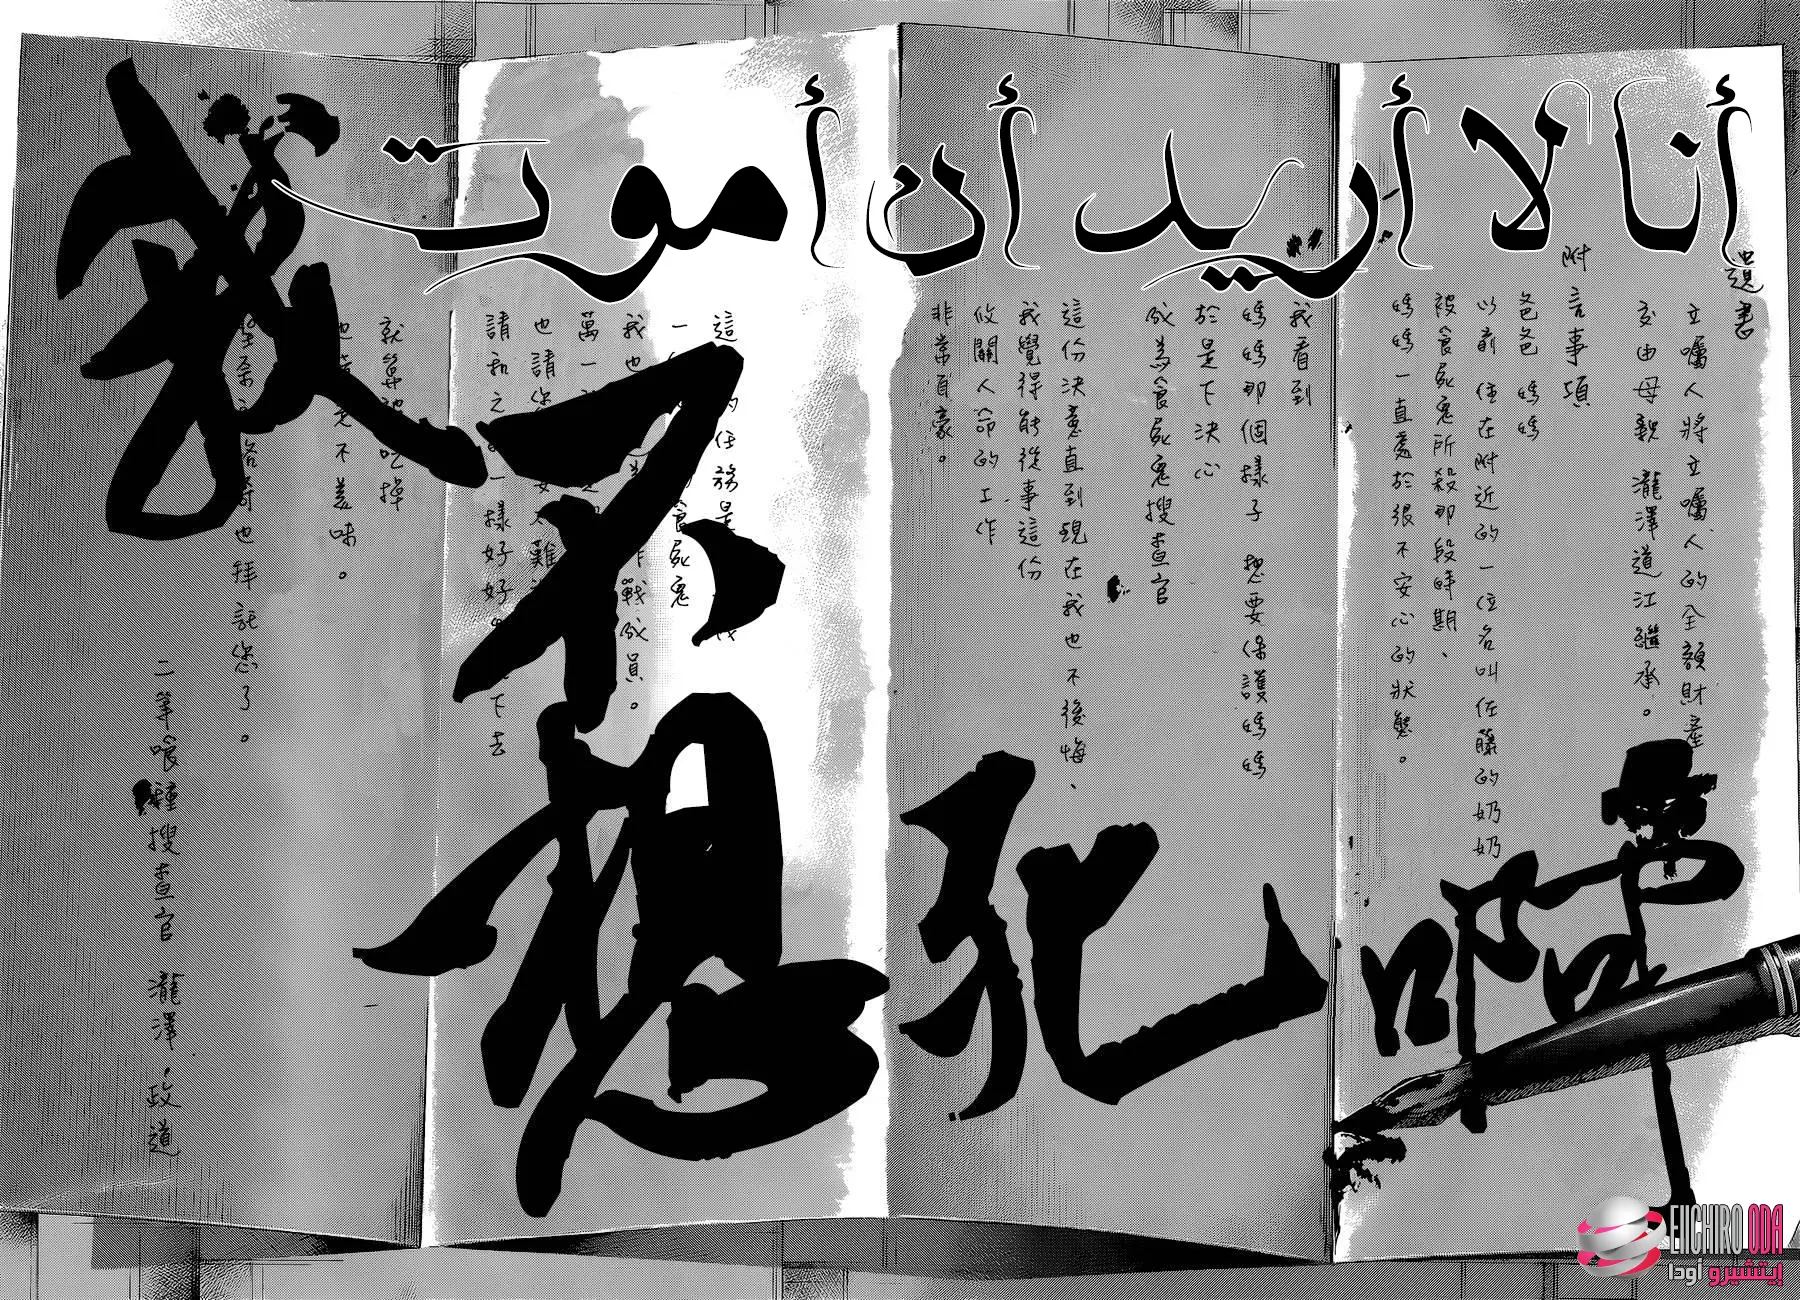 أنا لا أريد أن أموت
遺書
立囑人將立囑人的全額財產
交由母親 瀧澤道江繼承。
附言事項
爸爸 媽媽
以前 住在附近的一位名叫佐藤的奶奶
被食屍鬼所殺那段時期、
媽媽一直處於很不安心的狀態。
我看到
媽媽那個樣子 想要保護媽媽
於是下決心
成為食屍鬼搜查官
這份決意直到現在我也不後悔、
我覺得能從事這份
攸關人命的工作
非常自豪。
這 的任務是
一 食屍鬼
我也 作戰成員。
萬一
也請 難
請和之 一樣好好 下去
就算被吃掉
也 不美味。
也拜託您了。
二等喰種搜查官 瀧澤政道
我不想死啊
EIICHIRO ODA
إيتشيرو أودا